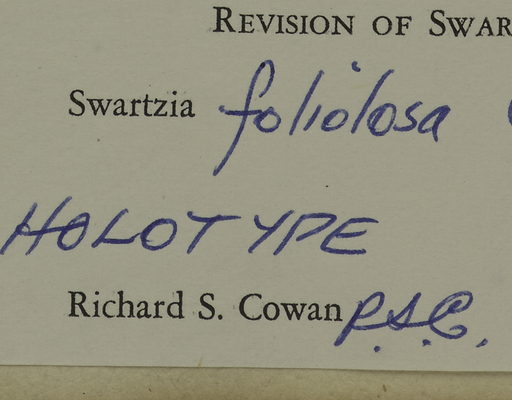 REVISION OF SWAR
Swartzia foliolosa (
HOLOTYPE
Richard S. Cowan R.S.C.